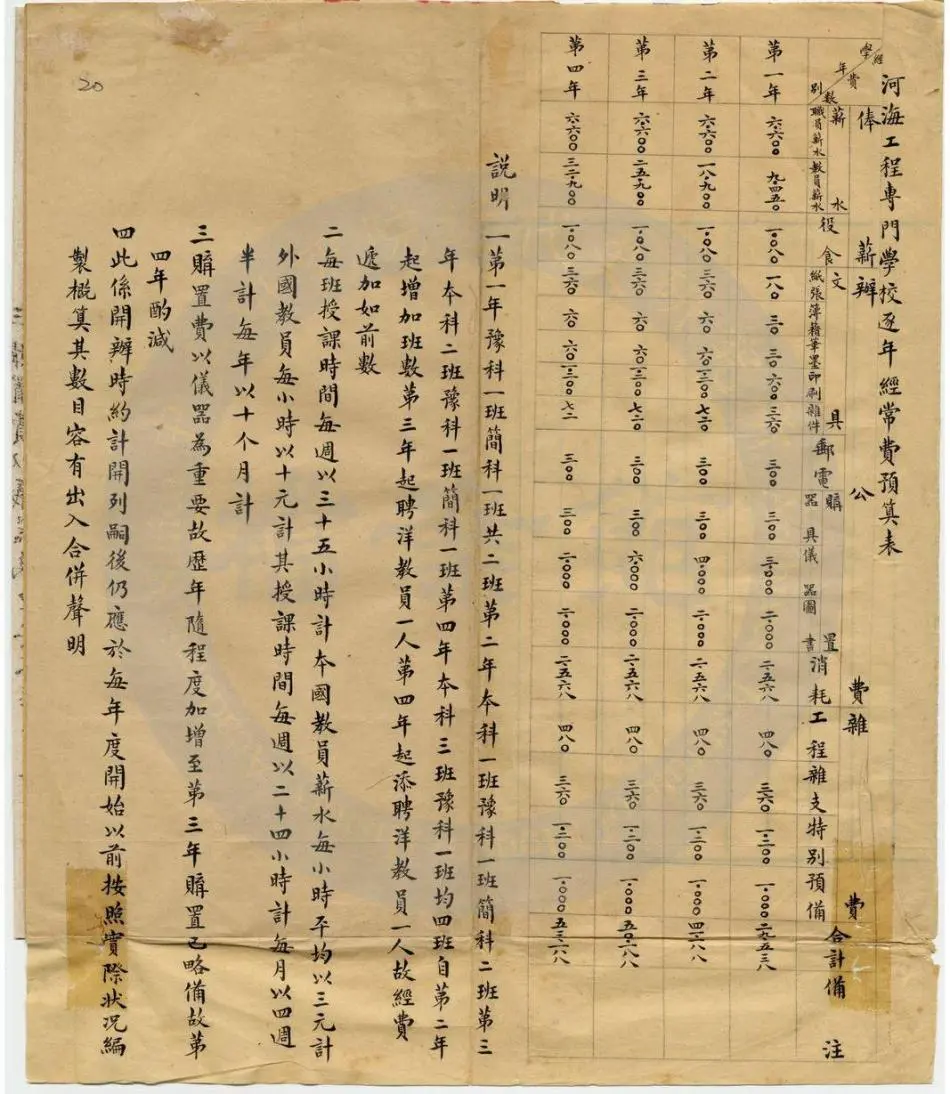 河海工程專門學校逐年經常費預算表
經費數
學年別
俸薪 辦公費 雜費 合計 備注
薪水 役食 文具 郵電 購置 消耗 工程 雜支 特別預備
職員薪水 教員薪水 紙張 簿籍 筆墨 印刷 雜件 器具 儀器 圖書
第一年 六·六〇〇 九·四五〇 一·〇八〇 一八〇 三〇 三〇 六〇〇 三六〇 三〇〇 三〇〇 三·〇〇〇 二·〇〇〇 二·五六八 四八〇 三六〇 一·二〇〇 一·〇〇〇 二九·五三八
第二年 六·六〇〇 一八·九〇〇 一·〇八〇 三六〇 六〇 六〇 一·二〇〇 七二〇 三〇〇 三〇〇 四·〇〇〇 二·〇〇〇 二·五六八 四八〇 三六〇 一·二〇〇 一·〇〇〇 四一·一八八
第三年 六·六〇〇 二五·九〇〇 一·〇八〇 三六〇 六〇 六〇 一·二〇〇 七二〇 三〇〇 三〇〇 六·〇〇〇 二·〇〇〇 二·五六八 四八〇 三六〇 一·二〇〇 一·〇〇〇 五〇·一八八
第四年 六·六〇〇 三二·九〇〇 一·〇八〇 三六〇 六〇 六〇 一·二〇〇 七二〇 三〇〇 三〇〇 二·〇〇〇 二·〇〇〇 二·五六八 四八〇 三六〇 一·二〇〇 一·〇〇〇 五三·一八八
説明 一第一年豫科一班簡科一班共二班第二年本科一班豫科一班簡科二班第三
年本科二班豫科一班簡科一班第四年本科三班豫科一班均四班自第二年
起增加班數第三年起聘洋教員一人第四年起添聘洋教員一人故經費
遞加如前數
二每班授課時間每週以三十五小時計本國教員薪水每小時平均以三元計
外國教員每小時以十元計其授課時間每週以二十四小時計每月以四週
半計每年以十个月計
三購置費以儀器為重要故歷年隨程度加增至第三年購置已略備故第
四年酌減
四此係開辦時約計開列嗣後仍應於每年度開始以前按照實際狀况編
製概算其數目容有出入合併聲明
20